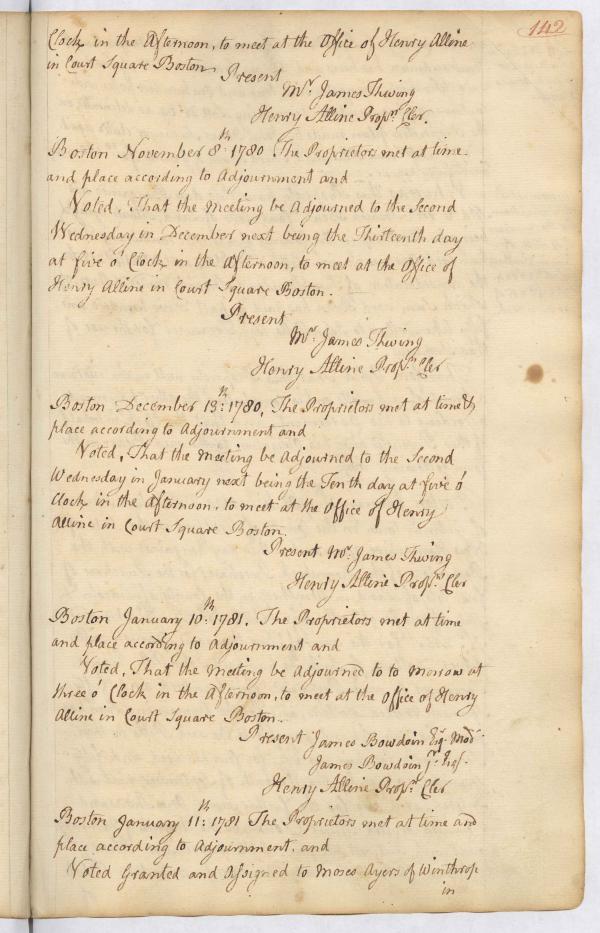 142
Clock in the Afternoon, to meet at the Office of Henry Alline
in Court Square Boston.
Present
Mr. James Thwing
Henry Alline Propr. Cler.
Boston November 8th: 1780 The Proprietors met at time
and place according to Adjournment and
Voted, That the meeting be Adjourned to the Second
Wednesday in December next being the Thirteenth day
at five o' Clock in the Afternoon, to meet at the Office of
Henry Alline in Court Square Boston.
Present
Mr. James Thwing
Henry Alline Propr. Cler
Boston December 13th: 1780, The Proprietors met at time &
place according to Adjournment and
Voted, That the meeting be Adjourned to the Second
Wednesday in January next being the Tenth day at five o'
Clock in the Afternoon, to meet at the Office of Henry
Alline in Court Square Boston.
Present Mr. James Thwing
Henry Alline Propr. Cler
Boston January 10th: 1781. The Proprietors met at time
and place according to Adjournment and
Voted, That the meeting be Adjourned to to morrow at
three o' Clock in the Afternoon, to meet at the Office of Henry
Alline in Court Square Boston.
Present James Bowdoin Esqr. Modr.
James Bowdoin Jr. Esqr.
Henry Alline Propr. Cler
Boston January 11th: 1781 The Proprietors met at time and
place according to Adjournment, and
Voted Granted and Assigned to Moses Ayers of Winthrop
in